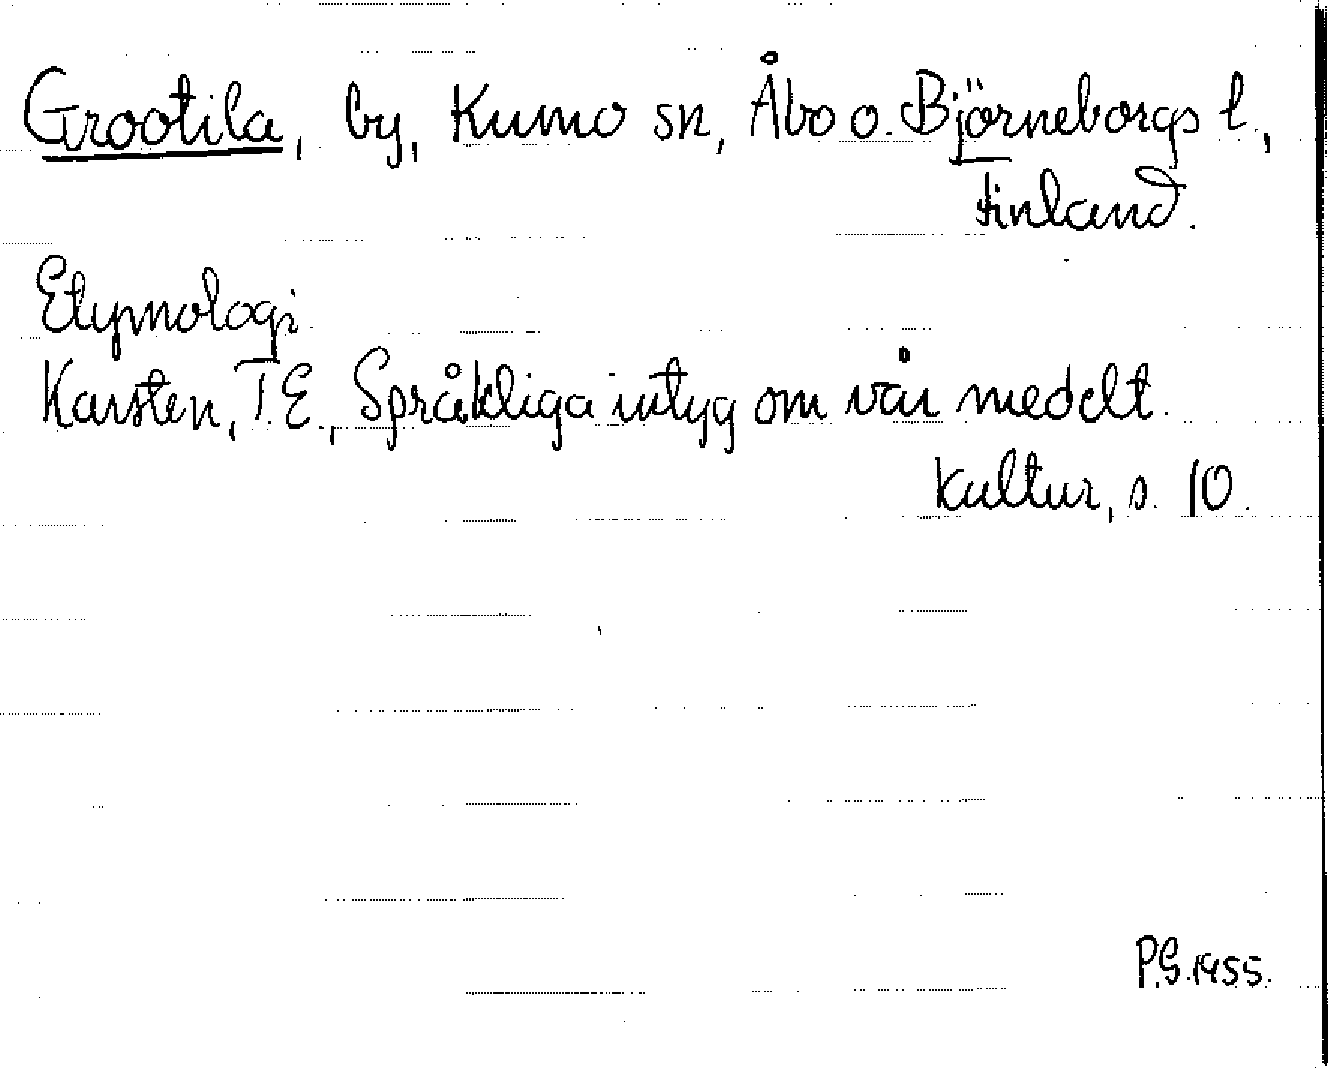 Grootila, by, Kumo sn, Åbo o. Björneborgs l.,
Finland.
Etymologi
Karsten, T.E., Språkliga intyg om vår medelt.
kultur, s. 10.
P.G. 1955.